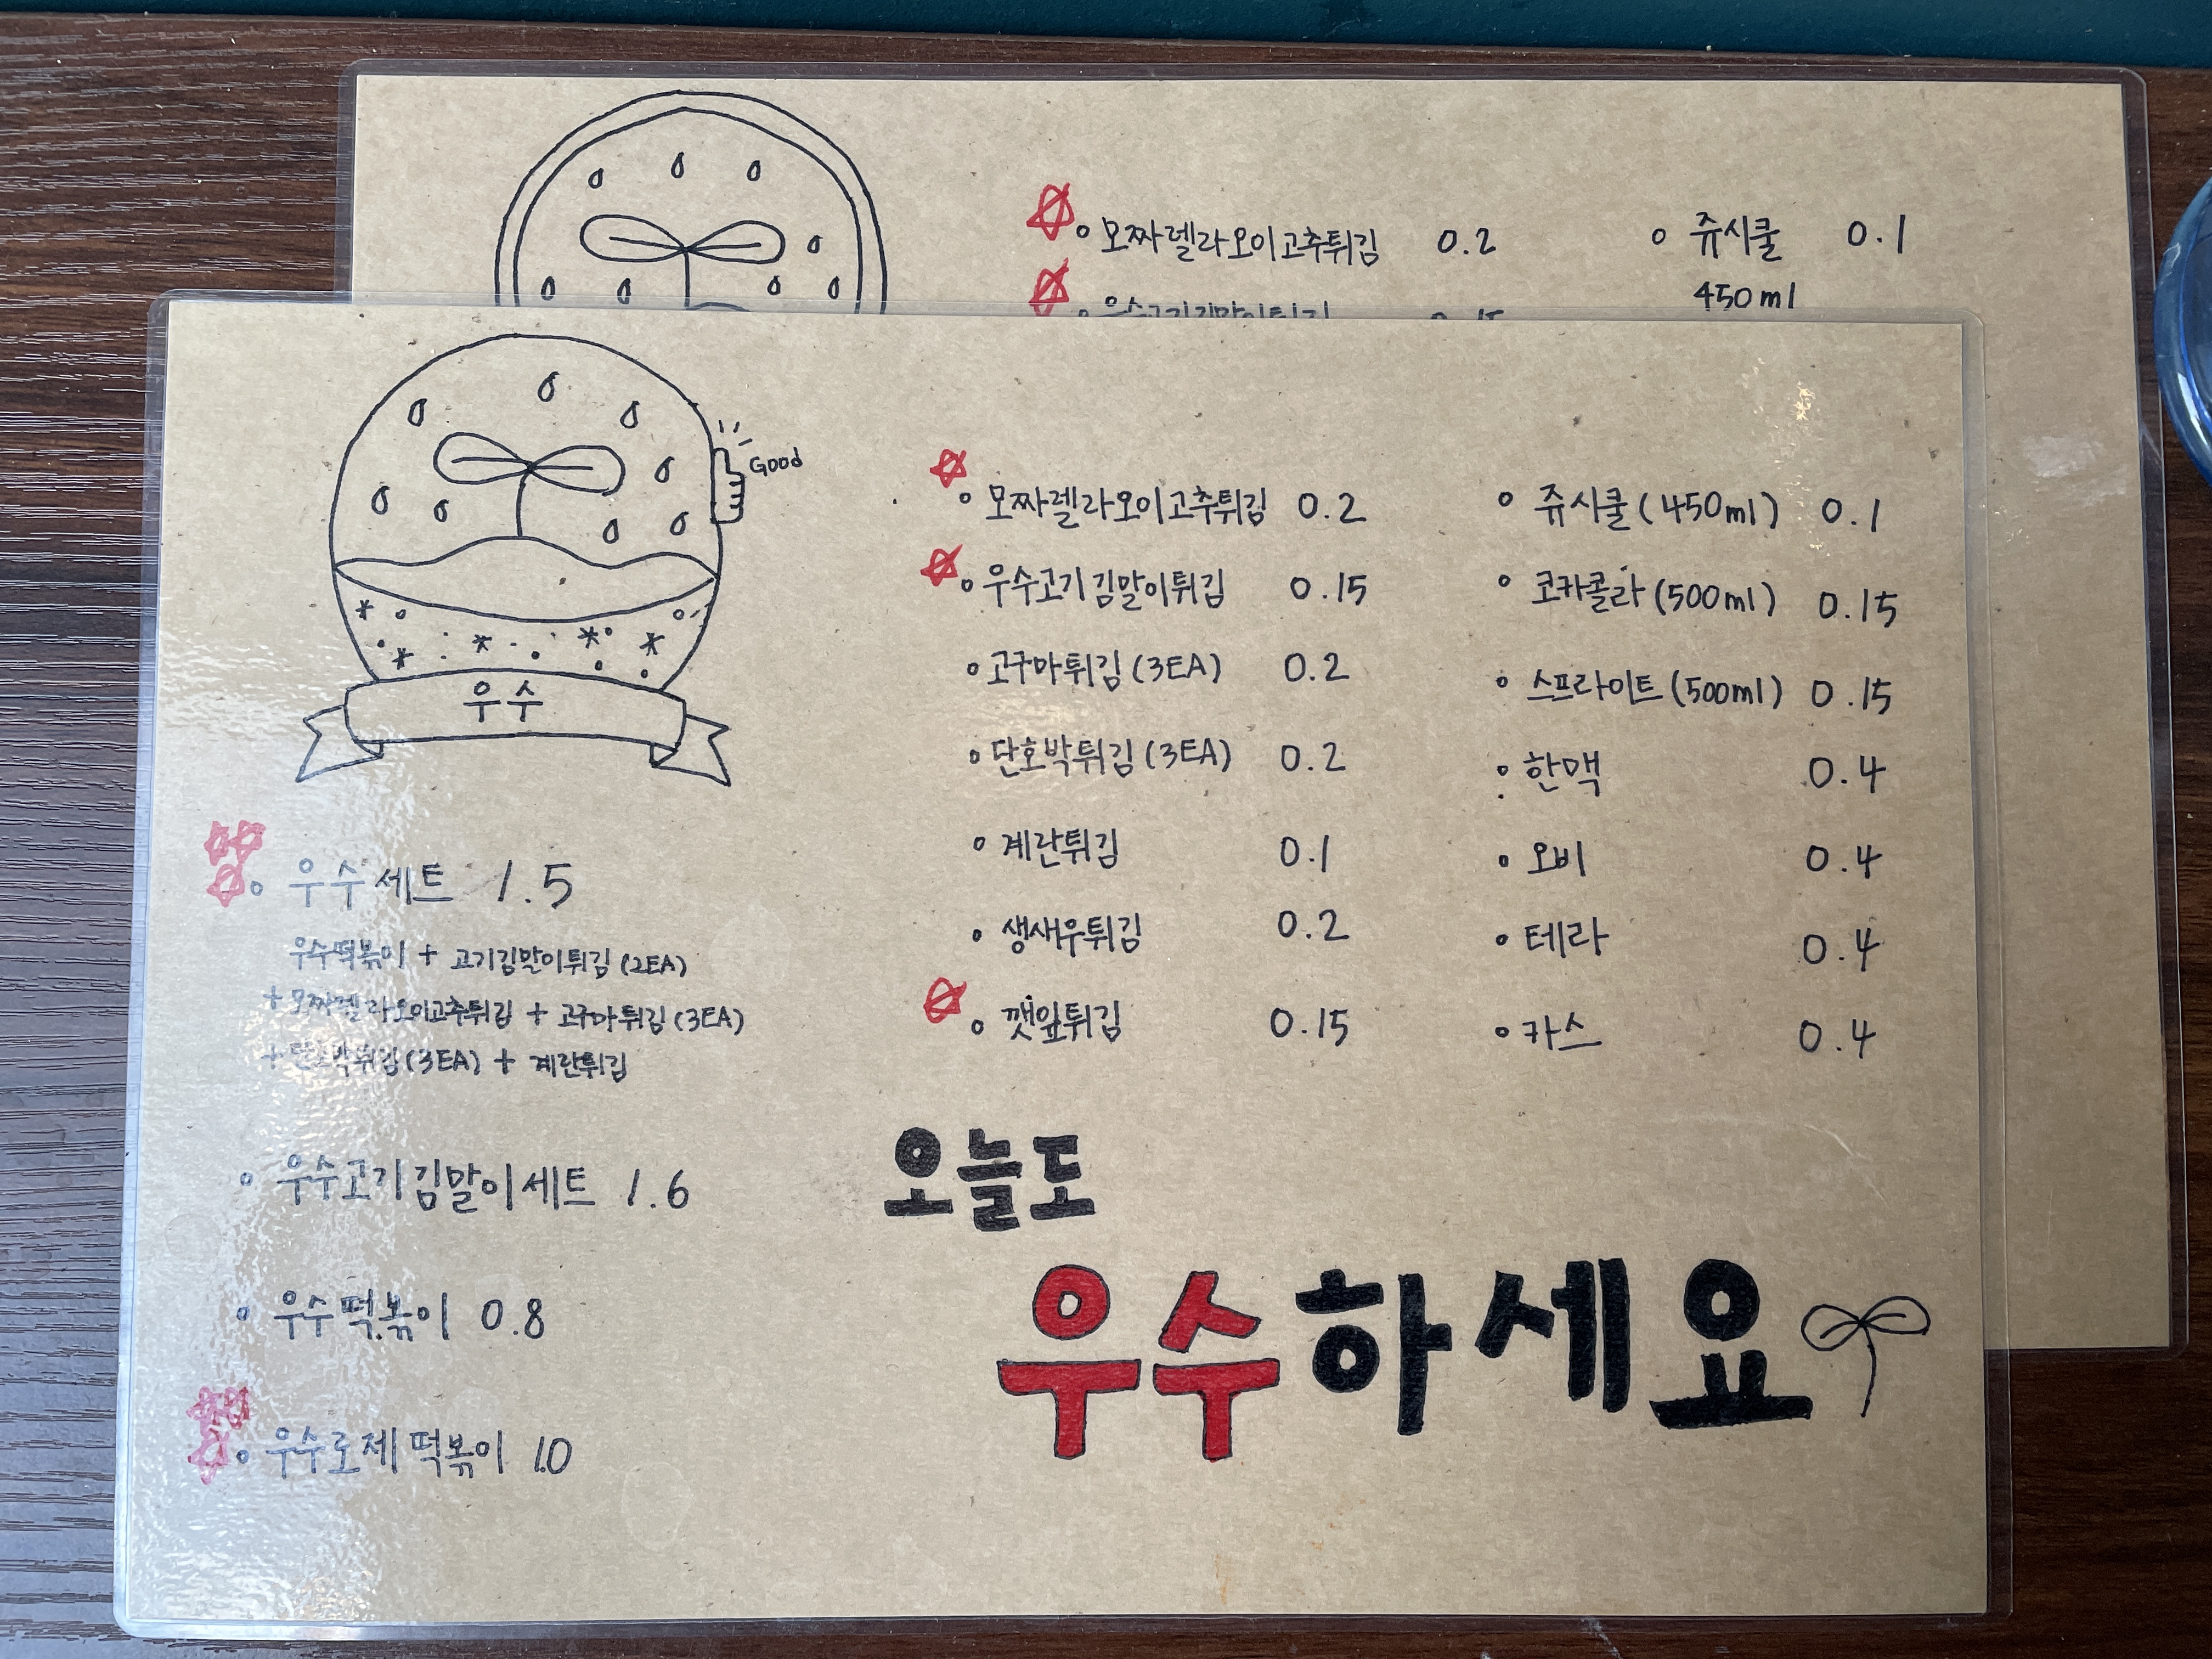 모짜렐라오이고추튀김 0.2
쥬시쿨 0.1
450ml
우수고기김말이튀김 0.15
Good
우수
우수세트 1.5
우수떡볶이 + 고기김말이튀김 (2EA)
+ 모짜렐라오이고추튀김 + 고구마튀김 (3EA)
+ 단호박튀김 (3EA) + 계란튀김
우수고기김말이세트 1.6
우수떡볶이 0.8
우수로제떡볶이 1.0
모짜렐라오이고추튀김 0.2
우수고기김말이튀김 0.15
고구마튀김 (3EA) 0.2
단호박튀김 (3EA) 0.2
계란튀김 0.1
생새우튀김 0.2
깻잎튀김 0.15
쥬시쿨 (450ml) 0.1
코카콜라 (500ml) 0.15
스프라이트 (500ml) 0.15
한맥 0.4
오비 0.4
테라 0.4
카스 0.4
오늘도
우수하세요